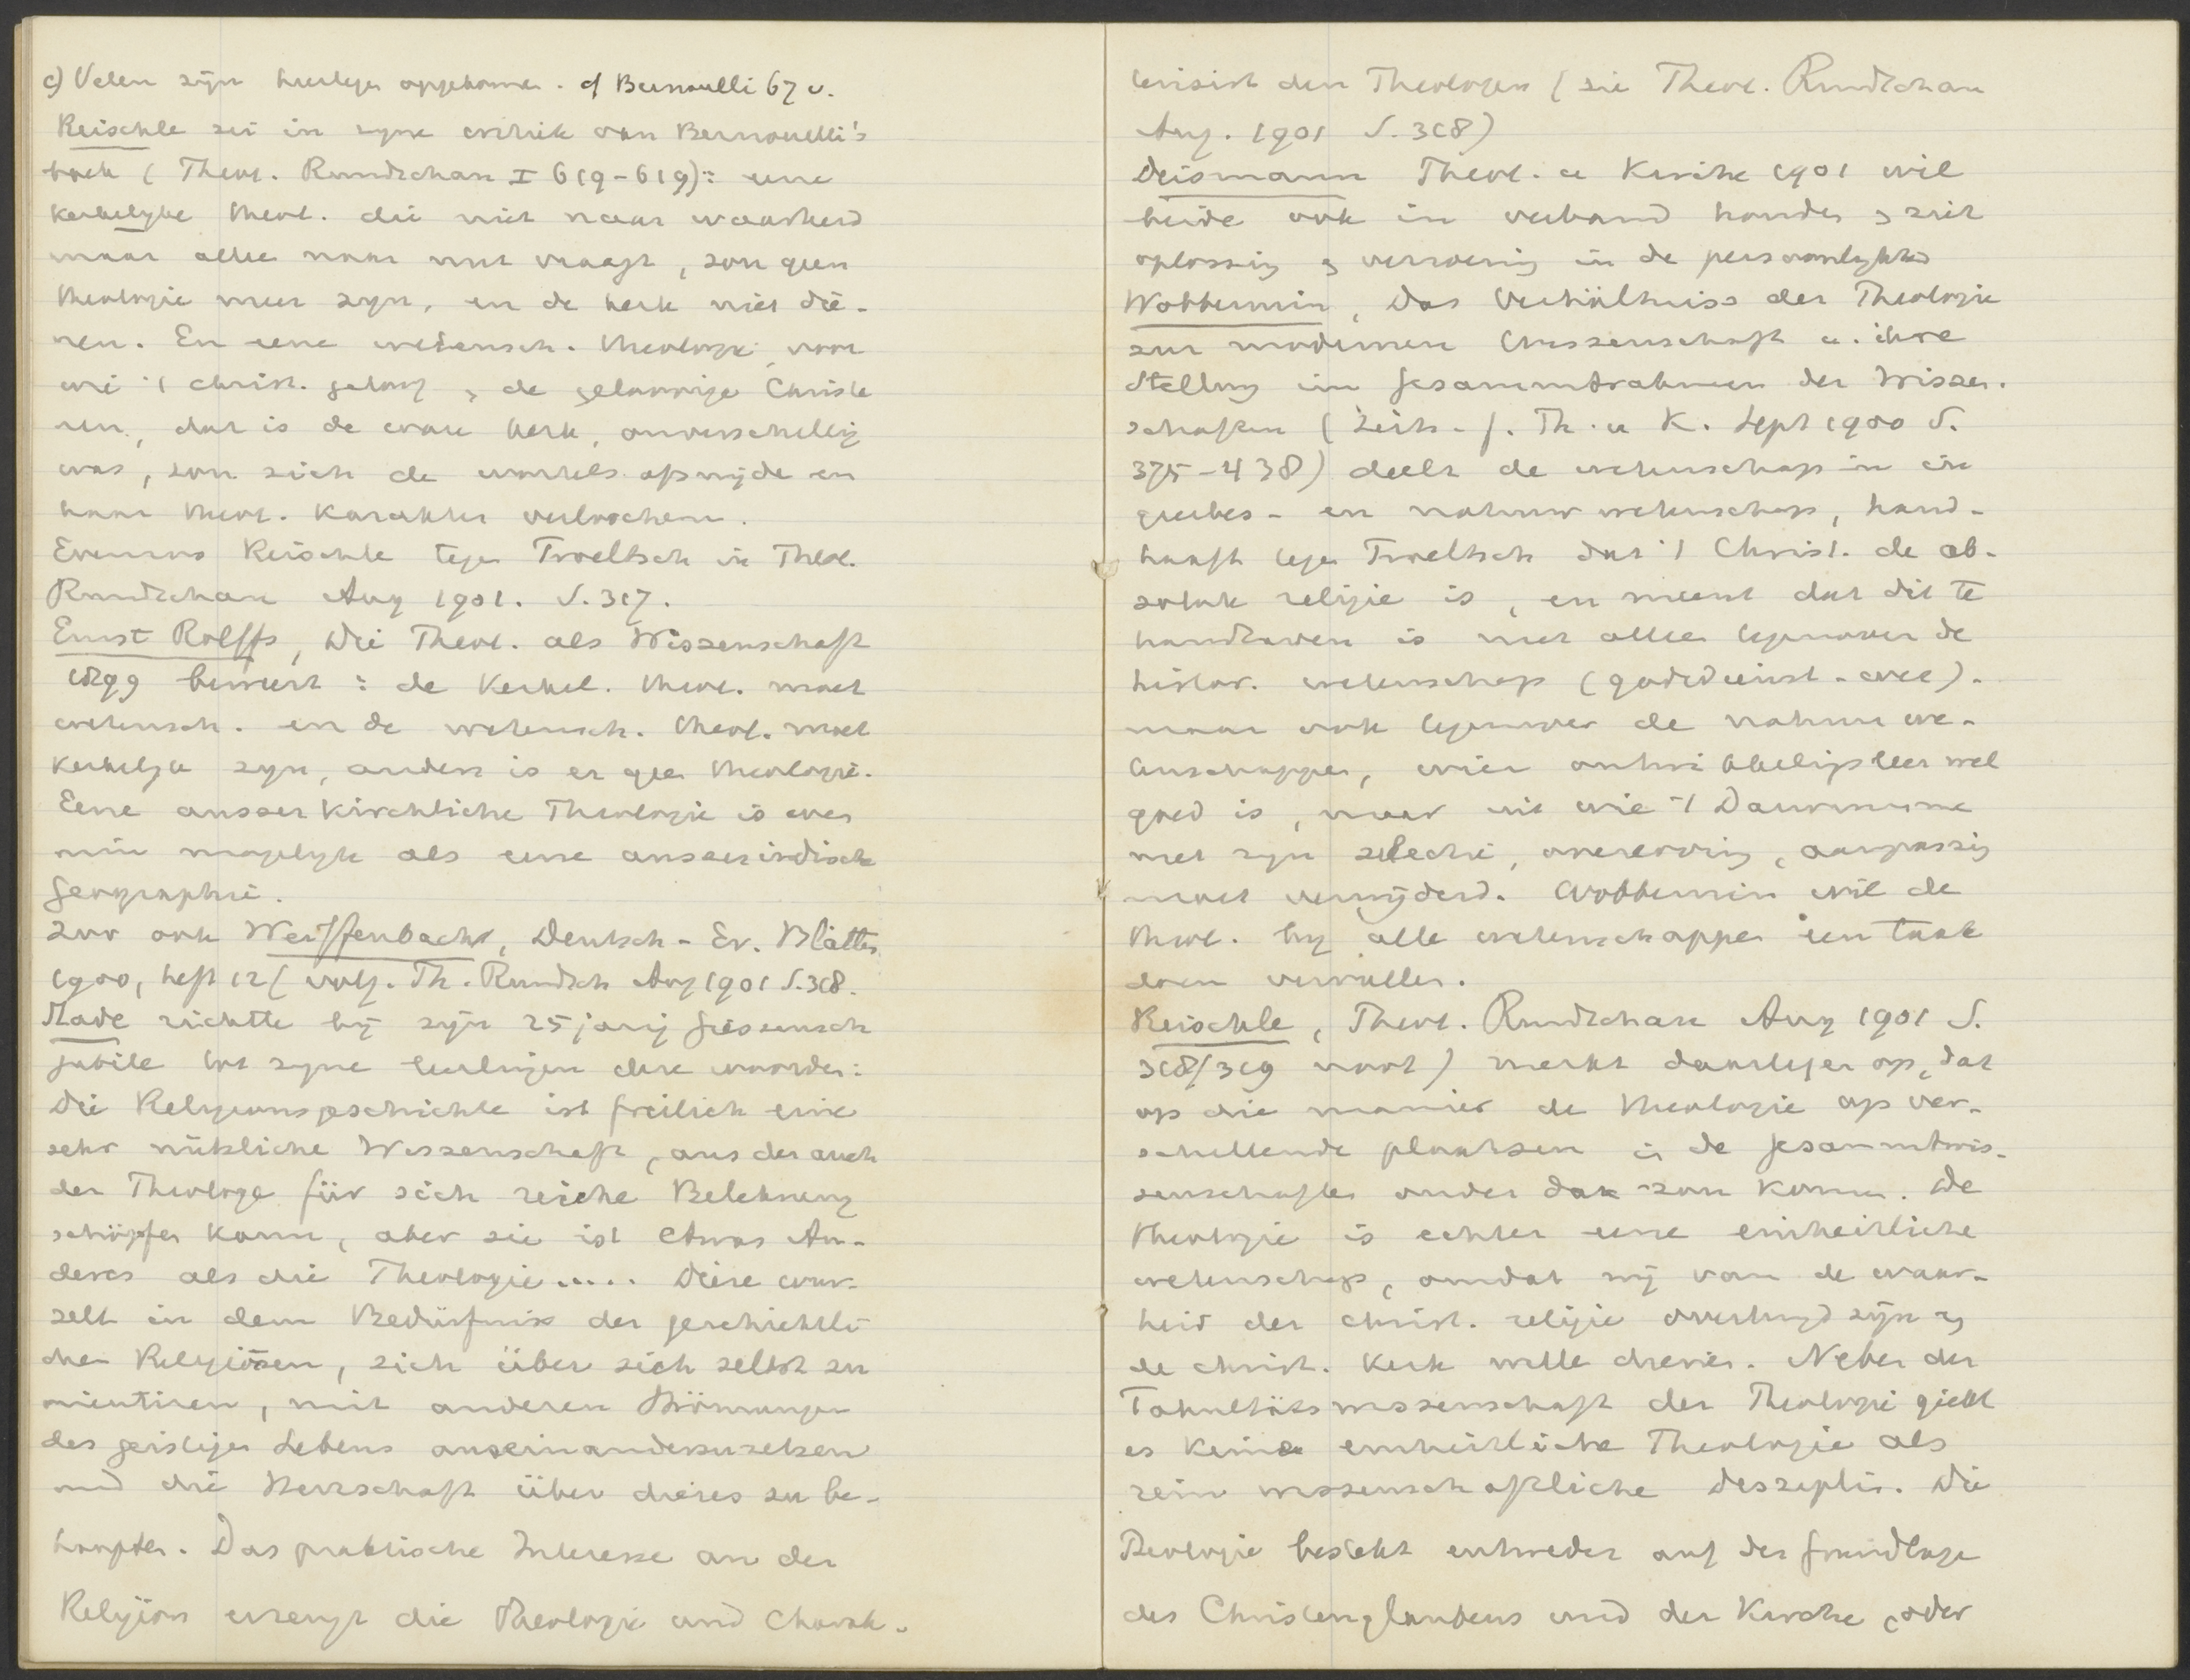 c) Velen zijn hiertegen opgekomen. cf Bernouilli 67 v.
Reischle zei in zyne critiek van Bernouelli's
boek (Theol. Rundschau I 619-619): eene
kerkelyke theol. die niet naar waarheid
maar alleen naar nut vraagt, zou geen
theologie meer zyn, en de kerk niet die-
nen. En eene wetensch. theologie, voor
wie 't christ. geloof en de geloovige Christe
nen, dat is de ware kerk, onverschillig
was, zou zich de wortels afsnijden en
haar theol. karakter verloochenen.
Evenzoo Reischle tegen Troeltsch in Theol.
Rundschau Aug 1901. S. 317.
Ernst Rolffs, Die Theol. als Wissenschaft
1899 beweert: de Kerkel. theol. moet
wetensch. en de wetensch. theol. moet
kerkelijk zyn, anders is er geen theologie.
Eene ausserkirchliche Theologie is even
min mogelyk als eene ausserirdische
Geographie.
Zoo ook Weiffenbach, Deutsch-Ev. Blätter
1900, heft 12 (volg. Th. Rundsch Aug 1901 S. 318.
Stade richtte bij zijn 25 jarig Giessensch
jubile tot zyne leerlingen deze woorden:
Die Religionsgeschichte ist freilich eine
sehr nützliche Wissenschaft, aus der auch
der Theologe für sich reiche Belehrung
schöpfen kann, aber sie ist etwas An-
deres als die Theologie..... Diese wur-
zelt in dem Bedürfniss der geschichtli
chen Religionen, sich über sich selbst zu
orientiren, mit anderen Strömungen
des geistigen Lebens auseinanderzusetzen
und die Herrschaft über dieses zu be-
haupten. Das praktische Interesse an der
Religion erzeugt die Theologie und charak-
terisirt den Theologen (zie Theol. Rundschau
Aug. 1901 S. 318)
Deismann Theol. u Kirche 1901 wil
beide ook in verband houden en ziet
oplossing en verzoening in de persoonlykheid
Wobbermin, Das Verhältniss der Theologie
zur modernen Wissenschaft u. ihre
Stellung im Gesammtrahmen der Wissen-
schaften (Zeits. f. Th. u K. Sept 1900 S.
375-438) deelt de wetenschap in in
geestes- en natuurwetenschap, hand-
haaft tegen Troeltsch dat 't Christ. de ab-
solute religie is, en meent dat dit te
handhaven is niet alleen tegenover de
histor. wetenschap (godsdienst-wet).
maar ook tegenover de natuurwe-
tenschappen, wier ontwikkelingsleer wel
goed is, maar uit wie 't Darwinisme
met zyn selectie, overerving, aanpassing
moet verwijderd. Wobbermin wil de
theol. by alle wetenschappen een taak
doen vervullen.
Reischle, Theol. Rundschau Aug 1901 S.
318/319 noot) merkt daartegen op, dat
op die manier de theologie op ver-
schillende plaatsen in de Gesammtwis-
senschaften onder dak zou komen. De
theologie is echter eene einheitliche
wetenschap, omdat wij van de waar-
heid der christ. religie overtuigd zijn en
de christ. kerk willen dienen. Neben der
Fakultätswissenschaft der Theologie giebt
es keine einheitliche Theologie als
rein wissenschaftliche Disziplin. Die
Theologie besteht entweder auf der Grundlage
des Christenglaubens und der Kirche, oder